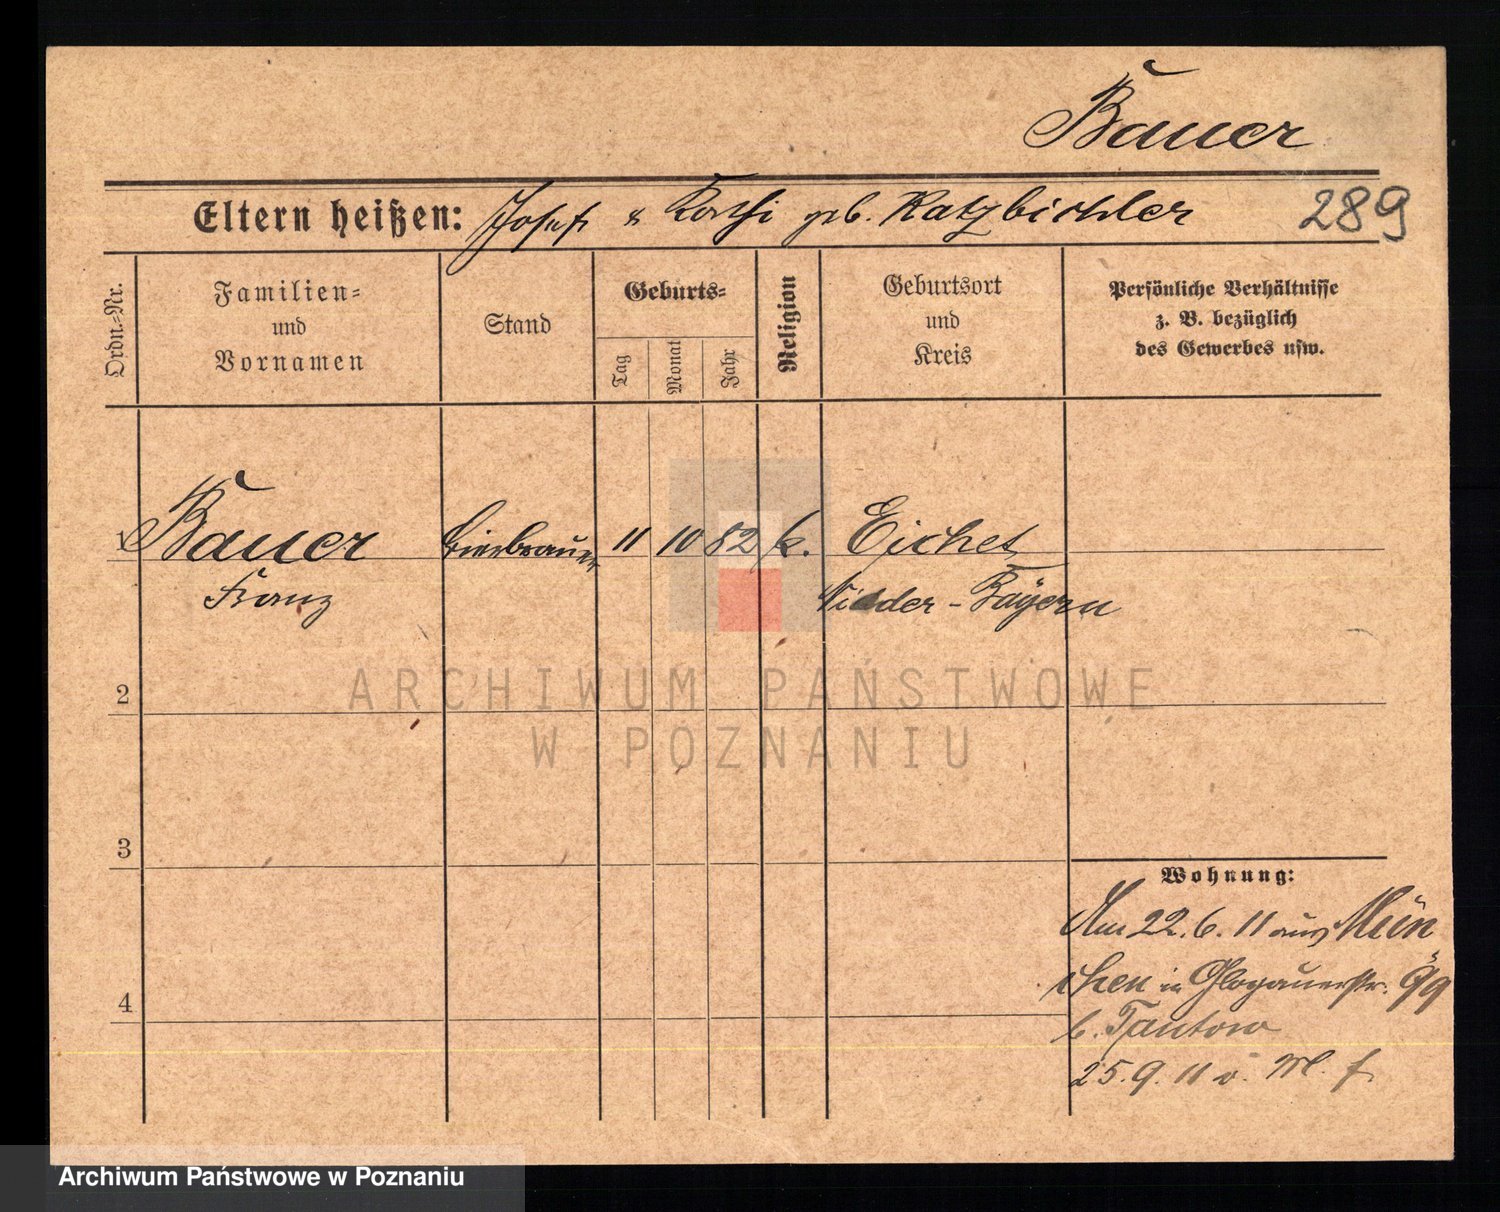 Bauer
Eltern heißen: Josef & Kathi geb. Katzbichler
289
Ordn.-Nr.
Familien-
und
Vornamen
Stand
Geburts-
Tag
Monat
Jahr
Religion
Geburtsort
und
Kreis
Persönliche Verhältnisse
z. B. bezüglich
des Gewerbes usw.
1 Bauer Bierbrauer 11 10 82 k. Eichet
Franz Nieder-Bayern
2
ARCHIWUM PAŃSTWOWE
W POZNANIU
3
Wohnung:
Am 22.6.11 aus Mün
chen in Glogauerstr. 99
4
b. Tantow
25.9.11 v.
Archiwum Państwowe w Poznaniu